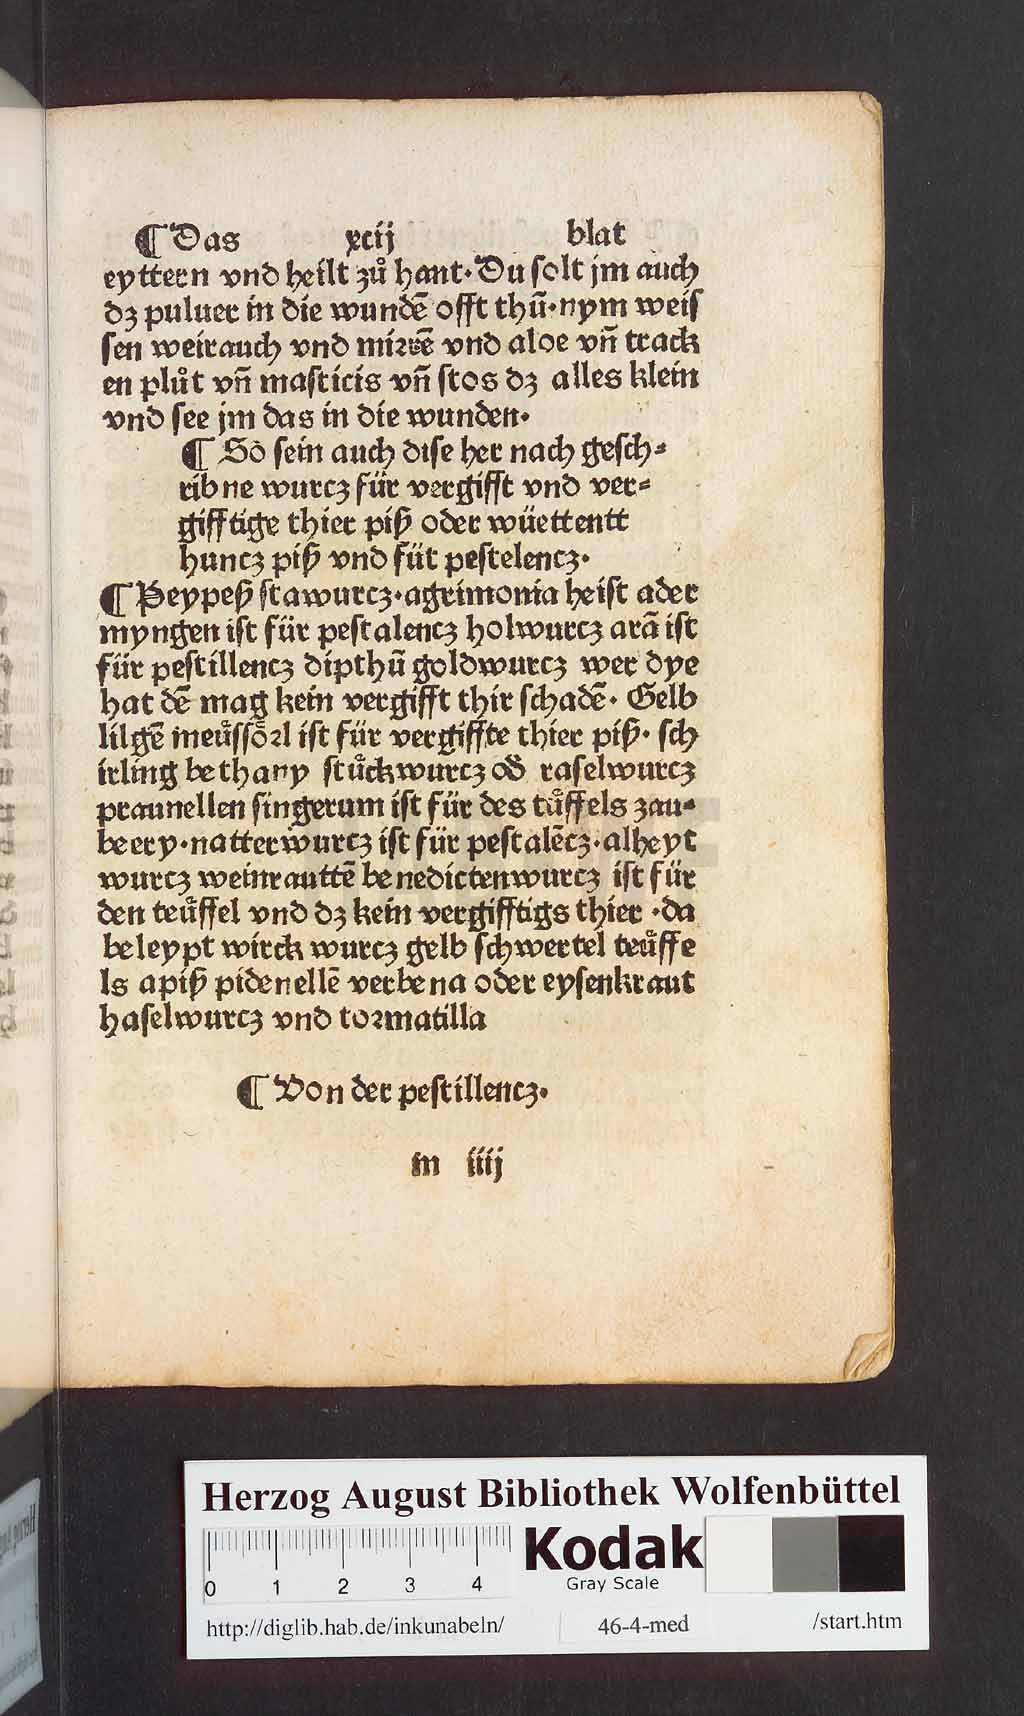 ¶ Das xcij blat
eyttern vnd heilt zů hant· Du ſolt jm auch
dz puluer in die wundē offt thū·nym weiſ
ſen weirauch vnd miꝛrē vnd aloe vn̄ track
en plůt vn̄ maſticis vn̄ ſtos dz alles klein
vnd ſee jm das in die wunden·
¶ So ſein auch diſe her nach geſch⸗
ribne wurcz für vergifft vnd ver⸗
gifftige thier piß oder wüettentt
huncz piß vnd füt peſtelencz·
¶ Peypeß ſtawurcz·agrimonia heiſt ader
myngen iſt für peſtalencz holwurcz arā iſt
für peſtillencz dipthū goldwurcz wer dye
hat dē mag kein vergifft thir ſchadē· Gelb
lilgē meůſſoͤꝛl iſt für vergiffte thier piß· ſch
irling bethany ſtůckwurcz od̄ raſelwurcz
praunellen ſingerum iſt für des tůffels zau⸗
beery·natterwurcz iſt für peſtalēcz·alheyt
wurcz weinrauttē benedictenwurcz iſt für
den teůffel vnd dz kein vergifftigs thier ·da
beleypt wirck wurcz gelb ſchwertel teůffe
ls apiß pidenellē verbena oder eyſenkraut
haſelwurcz vnd toꝛmatilla
¶ Von der peſtillencz·
m iiij
Herzog August Bibliothek Wolfenbüttel
0 1 2 3 4
Kodak
Gray Scale
http://diglib.hab.de/inkunabeln/ 46-4-med /start.htm